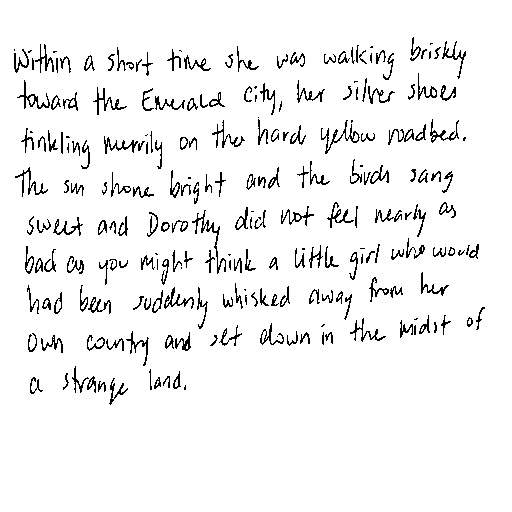 Within a short time she was walking briskly
toward the Emerald City, her silver shoes
tinkling merrily on the hard yellow roadbed.
The sun shone bright and the birds sang
sweet and Dorothy did not feel nearly as
bad as you might think a little girl who would
had been suddenly whisked away from her
own country and set down in the midst of
a strange land.